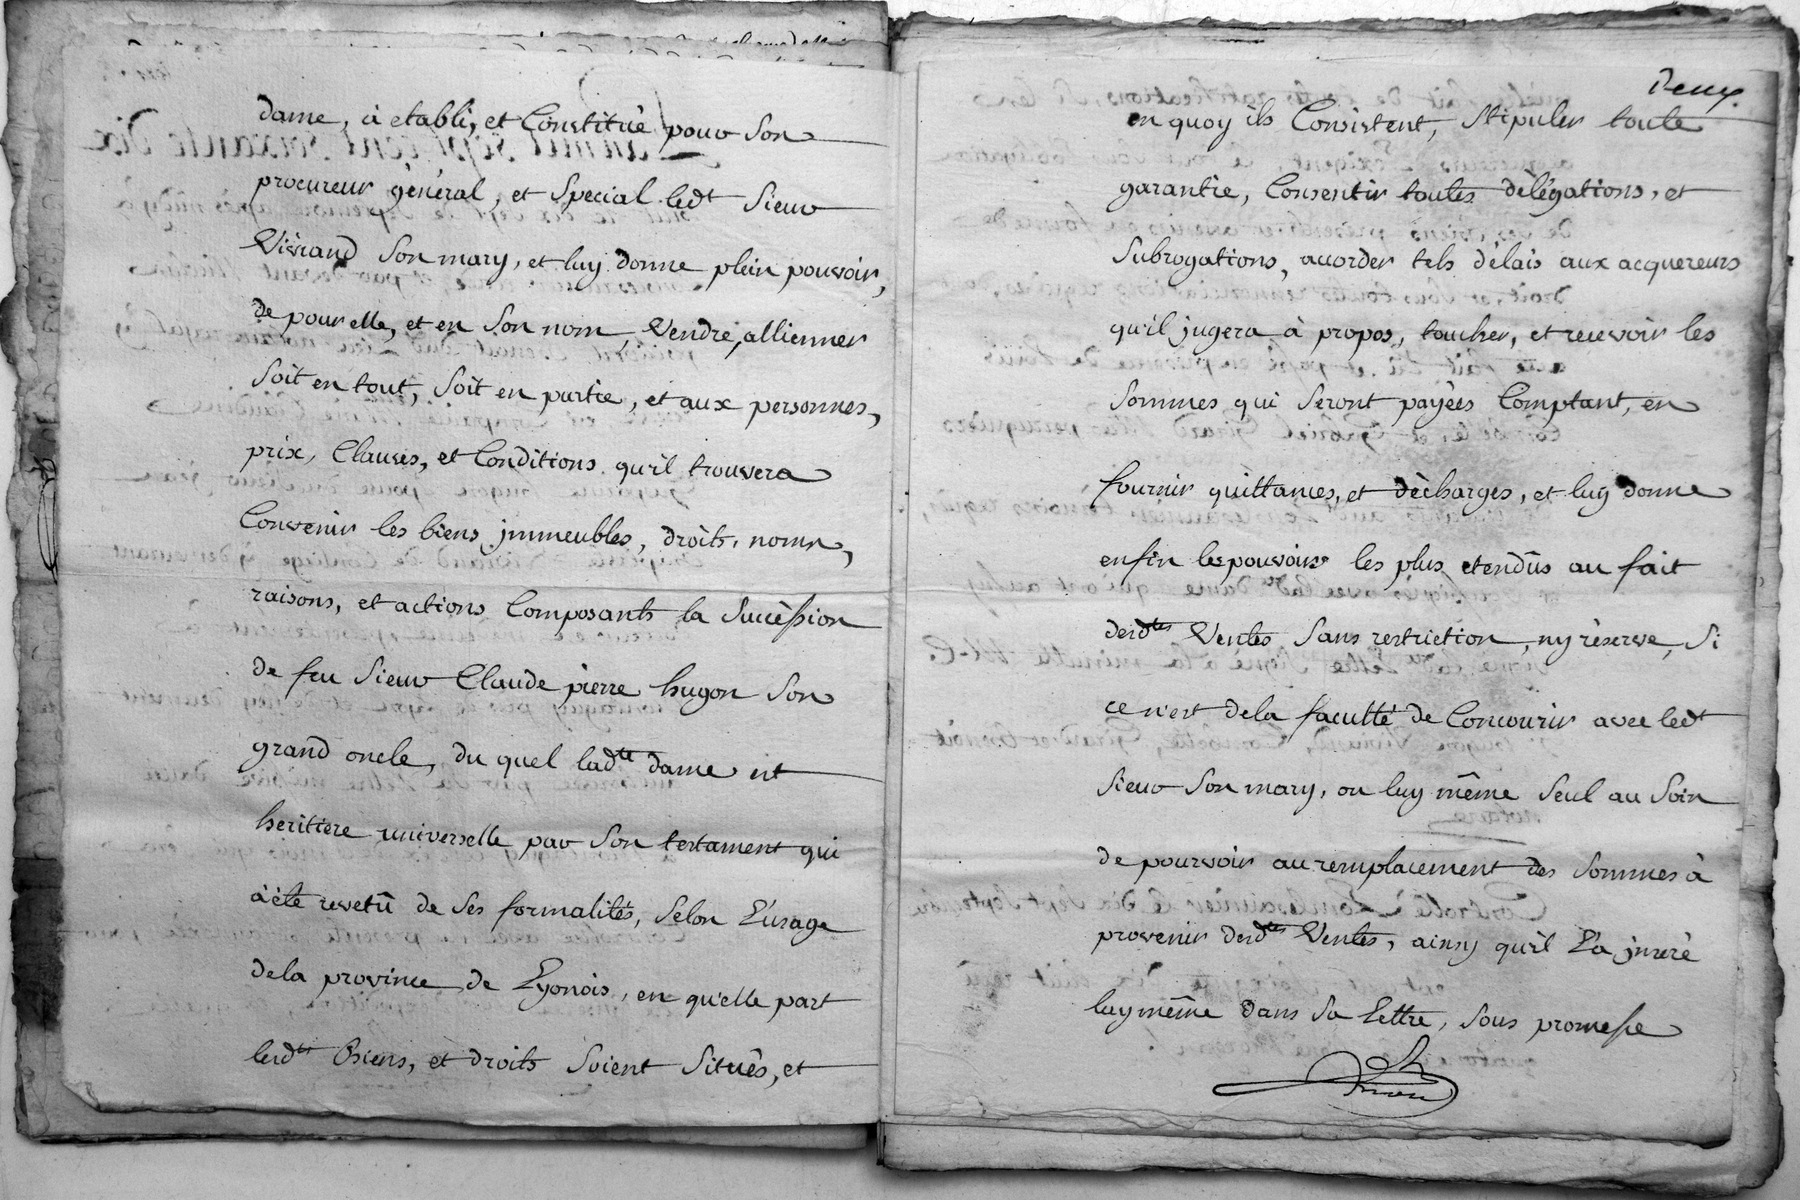 dame, à etabli, et Constitué pour Son
procureur général, et Special led.t Sieur
Viviand Son mary, et luy donne plein pouvoir,
de pour elle, et en Son nom, Vendre, allienner
Soit en tout, Soit en partie, et aux personnes,
prix, Clauses, et Conditions qu'il trouvera
Convenir les biens jmmeubles, droits, noms,
raisons, et actions Composants la Succéssion
de feu Sieur Claude pierre hugon Son
grand oncle, du quel lad.tte dame est
heritiere universelle par Son testament qui
à été revetû de Ses formalités, Selon L'usage
dela province de Lyonois, en qu'elle part
lesd.tts Biens, et droits Soient Situés, et
Deux.
en quoy ils Consistent, Stipuler toute
garantie, Consentir toutes délégations, et
Subrogations, accorder tels délais aux acquereurs
qu'il jugera à propos, toucher, et recevoir les
Sommes qui Seront payées Comptant, en
fournir quittances, et décharges, et luy donne
enfin les pouvoirs les plus etendûs au fait
desd.ttes Ventes Sans restriction, ny réserve, Si
ce n'est dela faculté de Concourir avec led.t
Sieur Son mary, ou luy même Seul au Soin
de pourvoir au remplacement des Sommes à
provenir desd.ttes Ventes, ainsy qu'il L'a jnséré
luy même dans Sa Lettre, Sous promesse